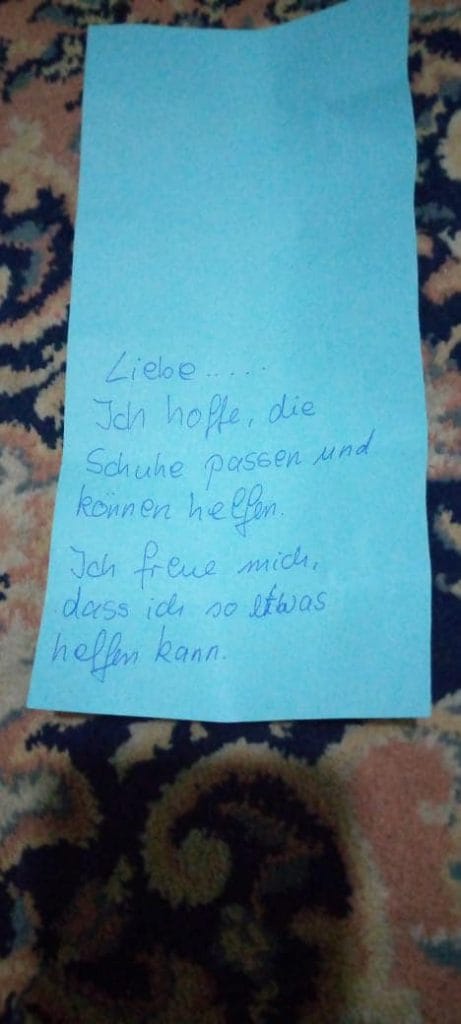 Liebe.....
Ich hoffe, die
Schuhe passen und
können helfen.
Ich freue mich,
dass ich so etwas
helfen kann.